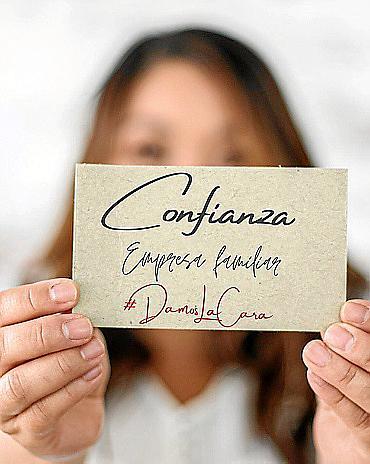 Confianza
Empresa familiar
#DamosLaCara